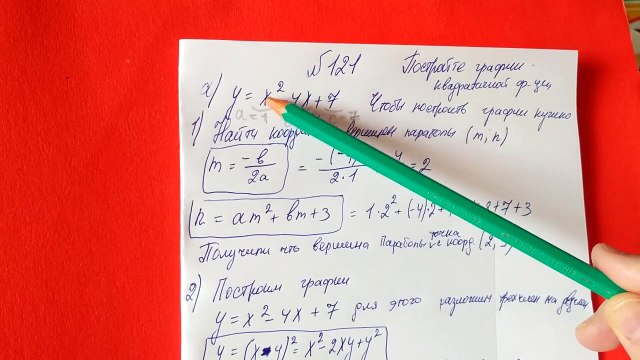 N121 Постройте графики
квадратичной ф-ции
а) y = x² - 4x + 7 Чтобы построить графики нужно
a = 1 c = 7
1) Найти вершины параболы (m, n)
m = -b/2a = -(-4)/2·1 4 = 2
n = am² + bm + 3 = 1·2² + (-4)·2 + 2 + 7 + 3
точка
Получили что вершина параболы с коорд. (2,
2) Построим графики
y = x² - 4x + 7 для этого разложим на
y = (x - y)² = x² - 2xy + y²